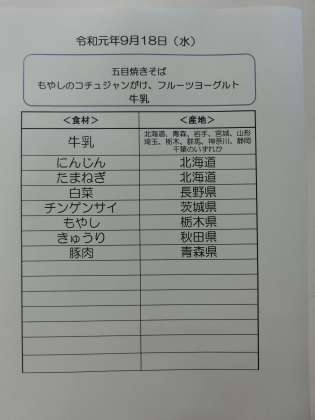 令和元年9月18日（水）
五目焼きそば
もやしのコチュジャンがけ、フルーツヨーグルト
牛乳
＜食材＞ ＜産地＞
牛乳 北海道、青森、岩手、宮城、山形
埼玉、栃木、群馬、神奈川、静岡
千葉のいずれか
にんじん 北海道
たまねぎ 北海道
白菜 長野県
チンゲンサイ 茨城県
もやし 栃木県
きゅうり 秋田県
豚肉 青森県